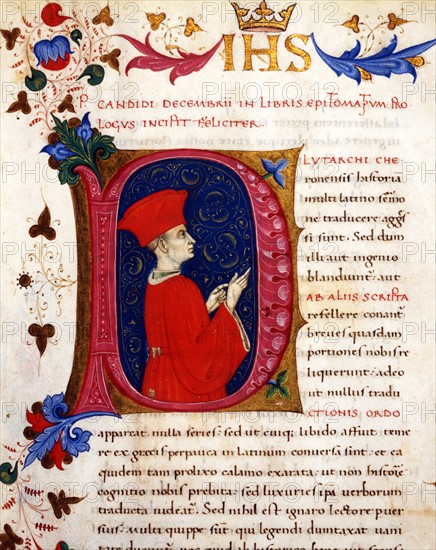 IHS
P CANDIDI DECEMBRII IN LIBRIS EPITOMATUM PRO
LOGUS INCIPIT FELICITER.
PLUTARCHI CHE
ronensis historia
multi latino sermo
ne traducere aggres
si sunt. Sed dum
illi aut ingenio
blandiunt: aut
AB ALIIS SCRIPTA
refellere conant
breves quasdam
portiones nobis re
liquerunt: adeo
ut nullus tradu
CTIONIS ORDO
appareat nulla series: sed ut cuiq; libido affuit teme
re ex grecis perpauca in latinum conversa sint: et ea
quidem tam prolixo calamo exarata: ut non histoie
cognitio nobis prebita: sed luxuries ipa verborum
traducta iudeat. Sed nihil est ignaro lectore puer
sius. Multi quippe sut qui legendi dumtaxat uani